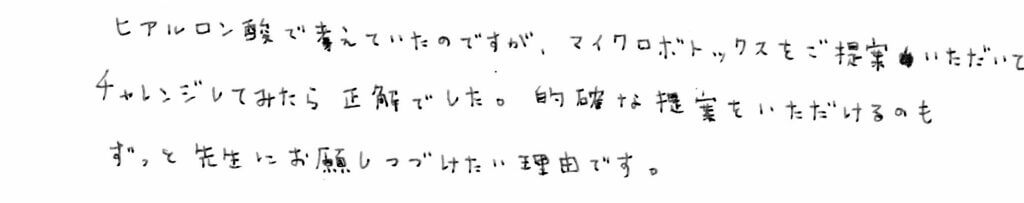 ヒアルロン酸で考えていたのですが、マイクロボトックスをご提案いただいて
チャレンジしてみたら正解でした。的確な提案をいただけるのも
ずっと先生にお願しつづけたい理由です。